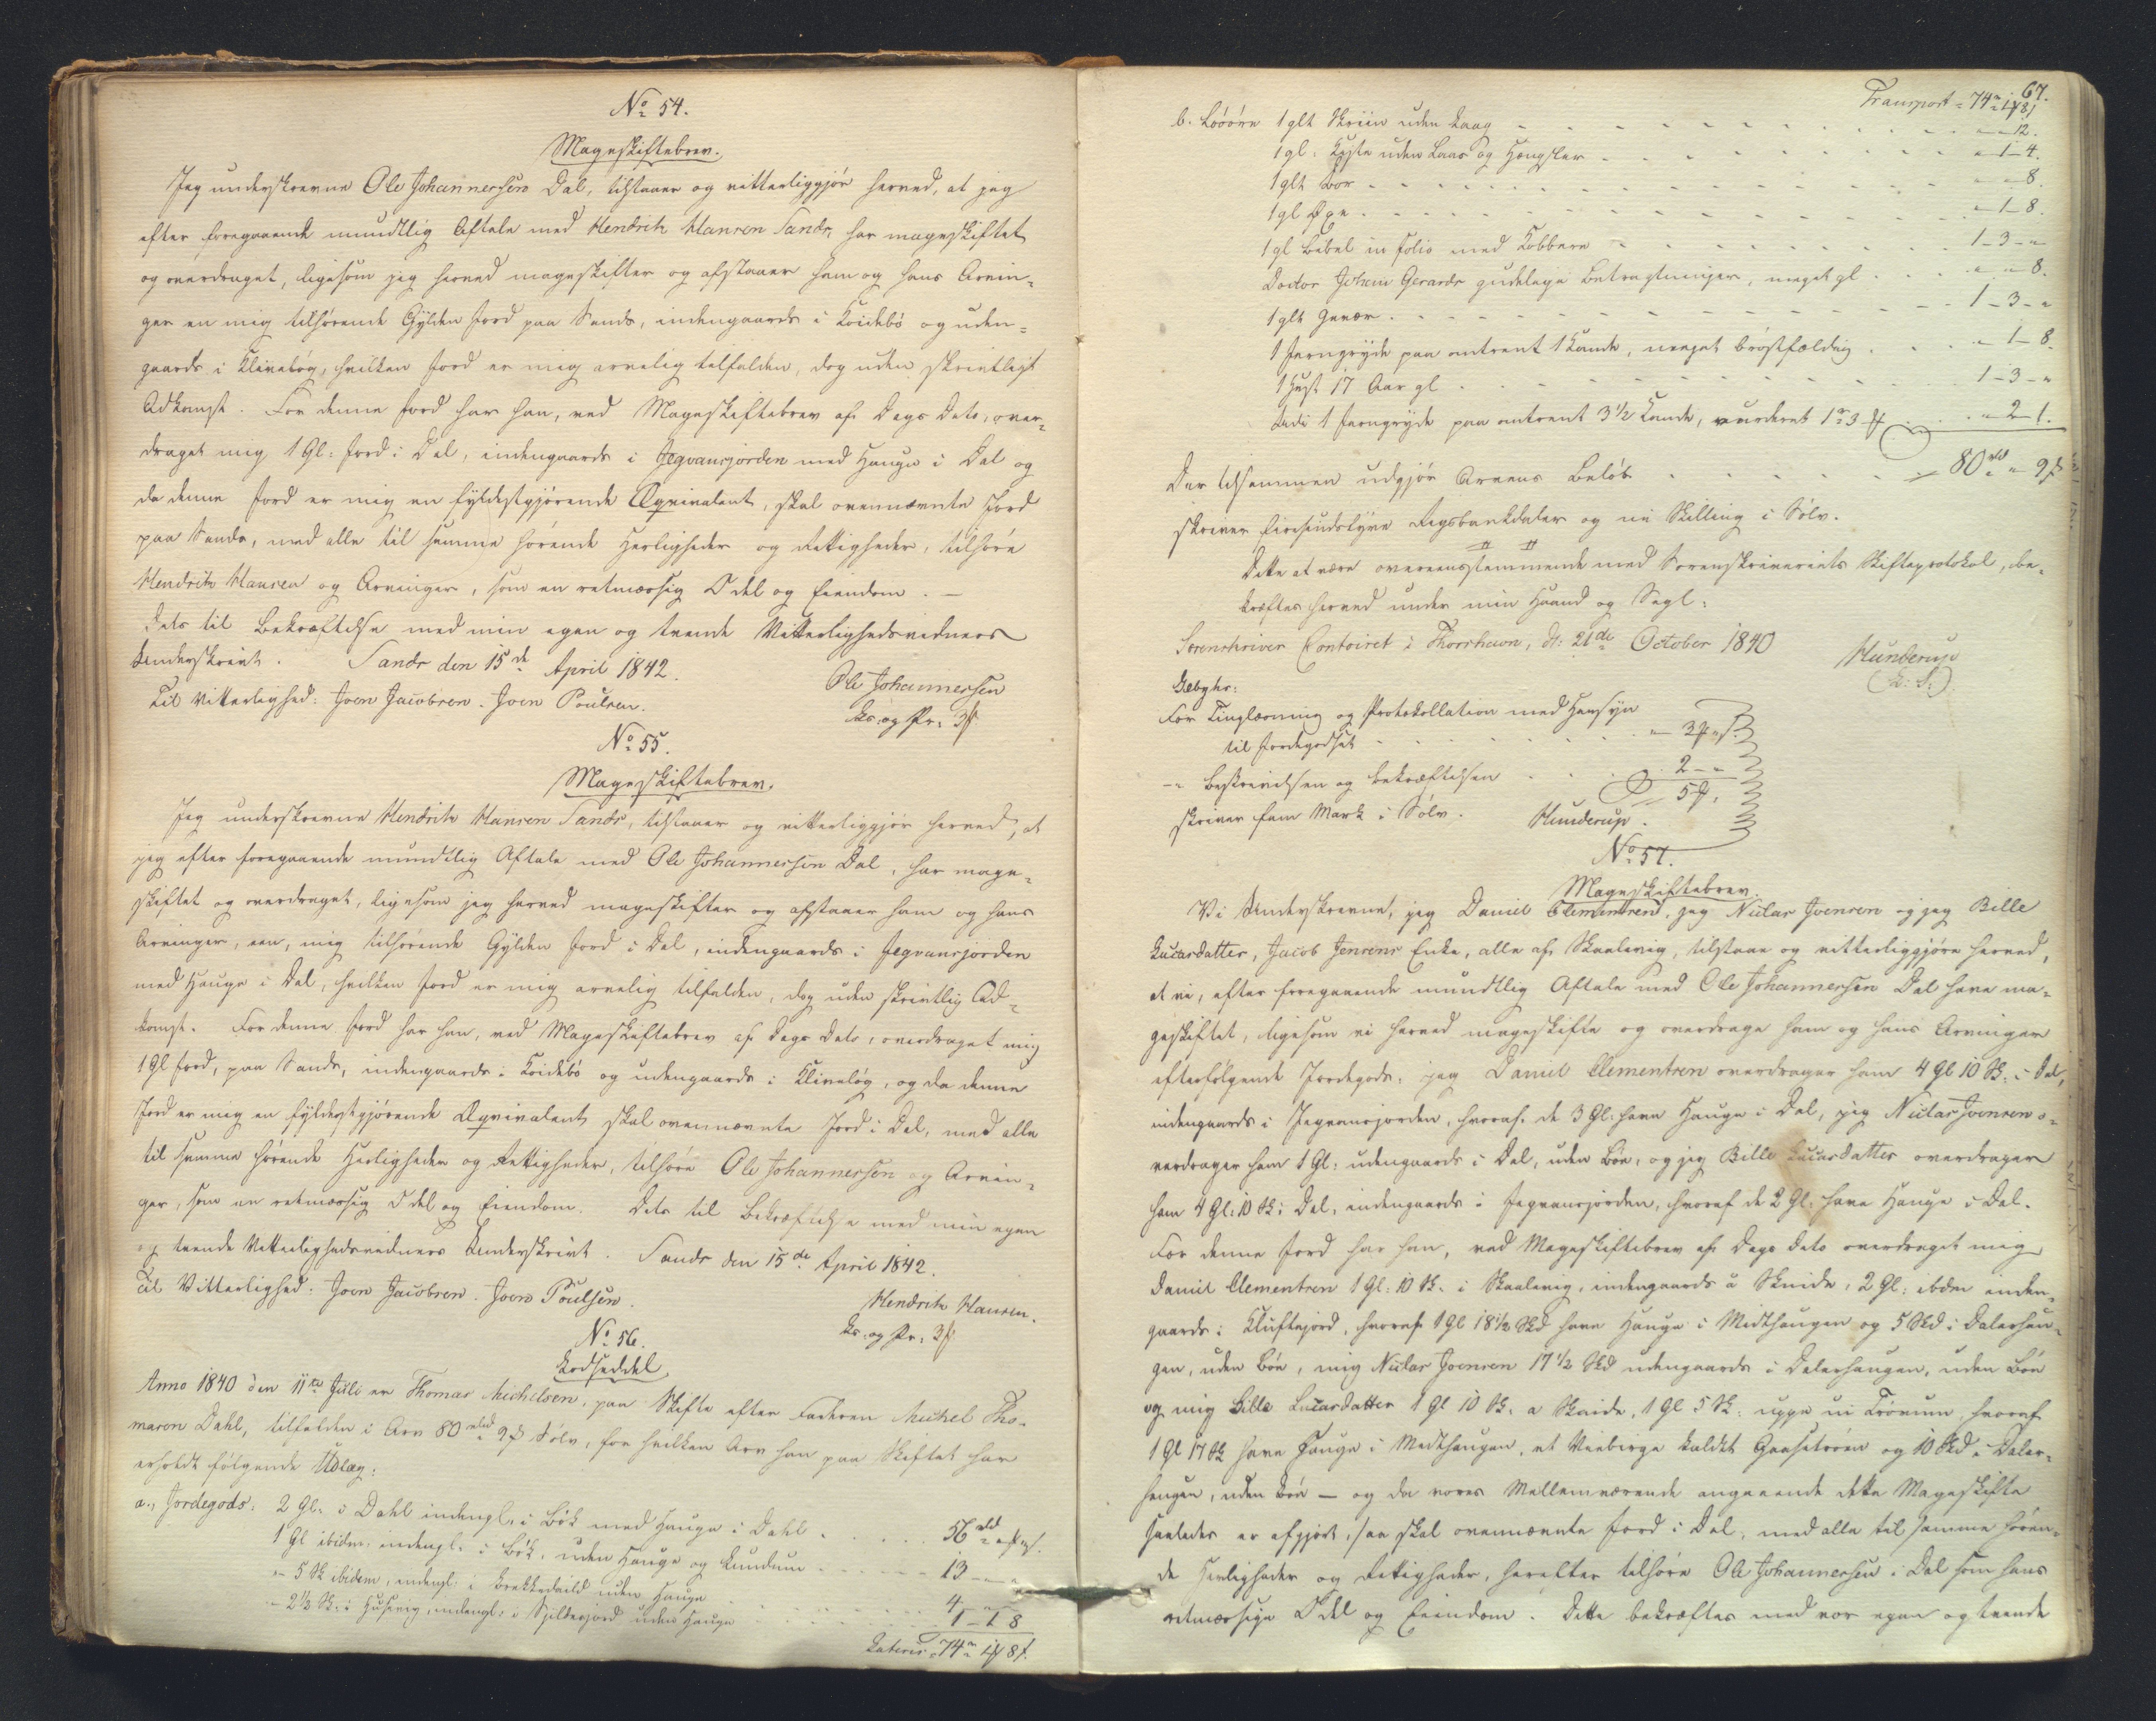 No 54.
Mageskiftebrev.
Jeg underskrevne Ole Johannessen Dal, tilstaaer og vitterliggjør herved, at jeg
efter foregaaende mundtlig Aftale med Hendrik Hansen Sands, har mageskiftet
og overdraget, ligesom jeg herved mageskifter og afstaaer ham og hans Arvin-
ger en mig tilhørende Gylden Jord paa Sands, indengaards i Koidebø og uden-
gaards i Klivaløg, hvilken Jord er mig arvelig tilfalden, dog uden skrivtligt
Adkomst. For denne Jord har han, ved Mageskiftebrev af Dags Dato, over-
draget mig 1 Gl: Jord i Dal, indengaards i Jegvansjorden med Hauge i Dal og
da denne Jord er mig en fyldestgjørende Æqvivalent, skal ovennævnte Jord
paa Sands, med alle til samme hørende Herligheder og Rettigheder, tilhøre
Hendrik Hansen og Arvinger, som en retmæssig Odel og Eiendom. —
Dets til Bekræftelse med min egen og tvende Vitterlighedsvidners
Underskrivt. Sands den 15de April 1842.
Ole Johannessen
Til Vitterlighed: Joen Jacobsen. Joen Poulsen.
Ls. og Pr: 3ß
No 55.
Mageskiftebrev.
Jeg underskrevne Hendrik Hansen Sands, tilstaaer og vitterliggjør herved, at
jeg efter foregaaende mundtlig Aftale med Ole Johannessen Dal, har mage-
skiftet og overdraget, ligesom jeg herved mageskifter og afstaaer ham og hans
Arvinger, een, mig tilhørende Gylden Jord i Dal, indengaards i Jegvansjorden
med Hauge i Dal, hvilken Jord er mig arvelig tilfalden, dog uden skrivtlig Ad-
komst. For denne Jord har han, ved Mageskiftebrev af Dags Dato, overdraget mig
1 Gl Jord, paa Sands, indengaards i Koidebø og udengaards i Klivaløg, og da denne
Jord er mig en fyldestgjørende Æqvivalent, skal ovennævnte Jord i Dal, med alle
til samme hørende Herligheder og Rettigheder, tilhøre Ole Johannessen og Arvin-
ger, som en retmæssig Odel og Eiendom. Dets til Bekræftelse med min egen
og tvende Vitterlighedsvidners Underskrivt. Sands den 15de April 1842.
Til Vitterlighed: Joen Jacobsen. Joen Poulsen.
Hendrik Hansen.
Ls. og Pr: 3ß
No 56.
Lodseddel
Anno 1840 den 11te Juli er Thomas Michelsen, paa Skifte efter Faderen Michel Tho-
masen Dahl, tilfalden i Arv 80 rbd 9ß Sølv, for hvilken Arv han paa Skiftet har
erholdt følgende Udlæg:
a., Jordegods: 2 Gl: i Dahl indengl. i Bøk med Hauge i Dahl . . . 56 rbd
1 Gl ibidem, indengl: i Bøk, uden Hauge og Lunduum . . . 13 - -
- 5 Sk ibidem, indengl: i uden Hauge . . . 4
- 2½ Sk: i Husevig, indengl: i uden Hauge . . . 1 - 1 8
Lateris 74 1 8ß
67.
Transport = 74 1 8ß
b. Løsøre 1 glt Skriin uden Laag . . . - - 12.
1 gl: Kiste uden Laas og Hængsler . . . - 1 - 4.
1 glt Bor . . . - - 8.
1 gl Øxe . . . - 1 - 8.
1 gl Bibel in Folio med Kobbere . . . 1 - 3 - -
Doctor Johan Gerards gudelige Betragtninger, meget gl . . . - - 8.
1 glt Gevær . . . 1 - 3 - -
1 Jerngryde paa omtrent 1 Kande, meget brøstfældig . . . - 1 - 8.
1 Hest 17 Aar gl . . . 1 - 3 - -
udi 1 Jerngryde paa omtrent 3½ Kande, vurderet 1 3 . . . - 2 - 1.
Der tilsammen udgjør Arvens Beløb . . . 80 rbd - 9ß
skriver Firesindstyve Rigsbankdaler og ni Skilling i Sølv.
Dette at være overeensstemmende med Sorenskriveriets Skifteprotokol, be-
kræftes herved under min Haand og Segl:
Sorenskriver Contoiret i Thorshavn, dt: 21de October 1840
Hunderup
(L. S.)
Gebyhr:
For Tinglæsning og Protokollation med Hensyn
til Jordegodset . . . 3
- Beskrivelsen og Bekræftelsen . . . 2 - -
5
skriver fem Mark i Sølv. Hunderup.
No 57.
Mageskiftebrev.
Vi Underskrevne, jeg Daniel Clementsen, jeg Niclas Joensen og jeg Bille
Lucasdatter, Jacob Jensens Enke, alle af Skaalevig, tilstaae og vitterliggjøre herved,
at vi, efter foregaaende mundtlig Aftale med Ole Johannessen Dal have ma-
geskiftet, ligesom vi herved mageskifte og overdrage ham og hans Arvinger
efterfølgende Jordegods: jeg Daniel Clementsen overdrager ham 4 Gl 10 Sk: i Dal,
indengaards i Jegvansjorden, hvoraf de 3 Gl: have Hauge i Dal, jeg Niclas Joensen o-
verdrager ham 1 Gl: udengaards i Dal, uden Bøe, og jeg Bille Lucasdatter overdrager
ham 4 Gl: 10 Sk: i Dal, indengaards i Jegvansjorden, hvoraf de 2 Gl: have Hauge i Dal.
For denne Jord har han, ved Mageskiftebrev af Dags Dato overdraget mig
Daniel Clementsen 1 Gl: 10 Sk. i Skaalevig, indengaards å Skeide, 2 Gl: ibdm inden-
gaards i Kluftejord, hvoraf 1 Gl 18½ Skd have Hauge i Midthaugen og 5 Skd i Dalerhau-
gen, uden Bøe, mig Niclas Joensen 17½ Skd udengaards i Dalerhaugen, uden Bøe
og mig Bille Lucasdatter 1 Gl 10 Sk. a Skeide, 1 Gl 5 Sk. uppe ui Trøum, hvoraf
1 Gl 17 Sk have Hauge i Midthaugen, et kaldet og 10 Skd i Daler-
haugen, uden Bøe — og da vores Mellemværende angaaende dette Mageskifte
saaledes er afgjort, saa skal ovennævnte Jord i Dal, med alle til samme høren-
de Herligheder og Rettigheder, herefter tilhøre Ole Johannessen i Dal som hans
retmæssige Odel og Eiendom. Dette bekræftes med vor egen og tvende